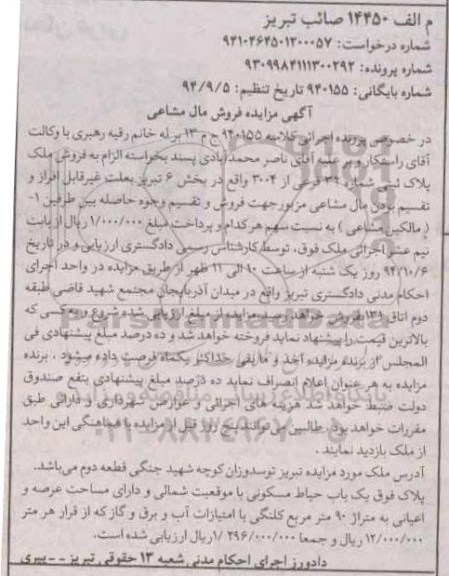 م الف ۱۴۴۵۰ صائب تبریز
شماره درخواست: ۹۴۱۰۴۶۴۵۰۱۲۰۰۰۵۷
شماره پرونده: ۹۳۰۹۹۸۴۱۱۱۳۰۰۲۹۲
شماره بایگانی: ۹۴۰۱۵۵ تاریخ تنظیم: ۹۴/۹/۵
آگهی مزایده فروش مال مشاعی
در خصوص پرونده اجرائی کلاسه ۹۴۰۱۵۵ ج م ۱۳ برله خانم رقیه رهبری با وکالت
آقای راستکار و بر علیه آقای ناصر محمدآبادی پسند بخواسته الزام به فروش ملک
پلاک ثبتی شماره ۳۹ فرعی از ۳۰۰۴ واقع در بخش ۶ تبریز بعلت غیرقابل افراز و
تقسیم بودن مال مشاعی مزبور جهت فروش و تقسیم وجوه حاصله بین طرفین -۱
( مالکین مشاعی ) به نسبت سهم هر کدام و پرداخت مبلغ ۱/۰۰۰/۰۰۰ ریال از بابت
نیم عشر اجرائی ملک فوق، توسط کارشناس رسمی دادگستری ارزیابی و در تاریخ
۹۴/۱۰/۶ روز یک شنبه از ساعت ۱۰ الی ۱۱ ظهر از طریق مزایده در واحد اجرای
احکام مدنی دادگستری تبریز واقع در میدان آذربایجان مجتمع شهید قاضی طبقه
دوم اتاق ۱۳۱ فروش خواهد رسید مزایده از مبلغ ارزیابی شده شروع و به کسی که
بالاترین قیمت را پیشنهاد نماید فروخته خواهد شد و ده درصد مبلغ پیشنهادی فی
المجلس از برنده مزایده اخذ و مابقی حداکثر یکماه فرصت داده میشود . برنده
مزایده به هر عنوان اعلام انصراف نماید ده درصد مبلغ پیشنهادی بنفع صندوق
دولت ضبط خواهد شد هزینه های اجرائی و عوارض شهرداری و دارائی طبق
مقررات خواهد بود. طالبین می توانند پنج روز قبل از مزایده با هماهنگی این واحد
از ملک بازدید نمایند .
آدرس ملک مورد مزایده تبریز توسدوزان کوچه شهید جنگی قطعه دوم می‌باشد.
پلاک فوق یک باب حیاط مسکونی با موقعیت شمالی و دارای مساحت عرصه و
اعیانی به متراژ ۹۰ متر مربع کلنگی با امتیازات آب و برق و گاز که از قرار هر متر
۱۲/۰۰۰/۰۰۰ ریال و جمعا ۱/۲۹۶/۰۰۰/۰۰۰ ریال ارزیابی شده است.
دادورز اجرای احکام مدنی شعبه ۱۳ حقوقی تبریز -- ببری
ParsNamadData